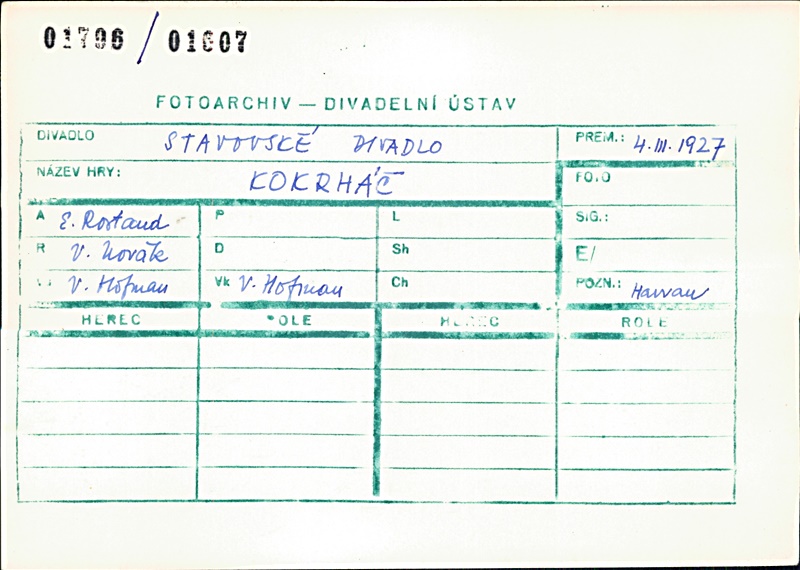 01796 / 01607
FOTOARCHIV — DIVADELNÍ ÚSTAV
DIVADLO STAVOVSKÉ DIVADLO PREM.: 4.III.1927
NÁZEV HRY: KOKRHÁČ FOTO
A E. Rostand P L SIG.:
R V. Novák D Sh E/
V. Hofman Vk V. Hofman Ch POZN.:
HEREC ROLE HEREC ROLE